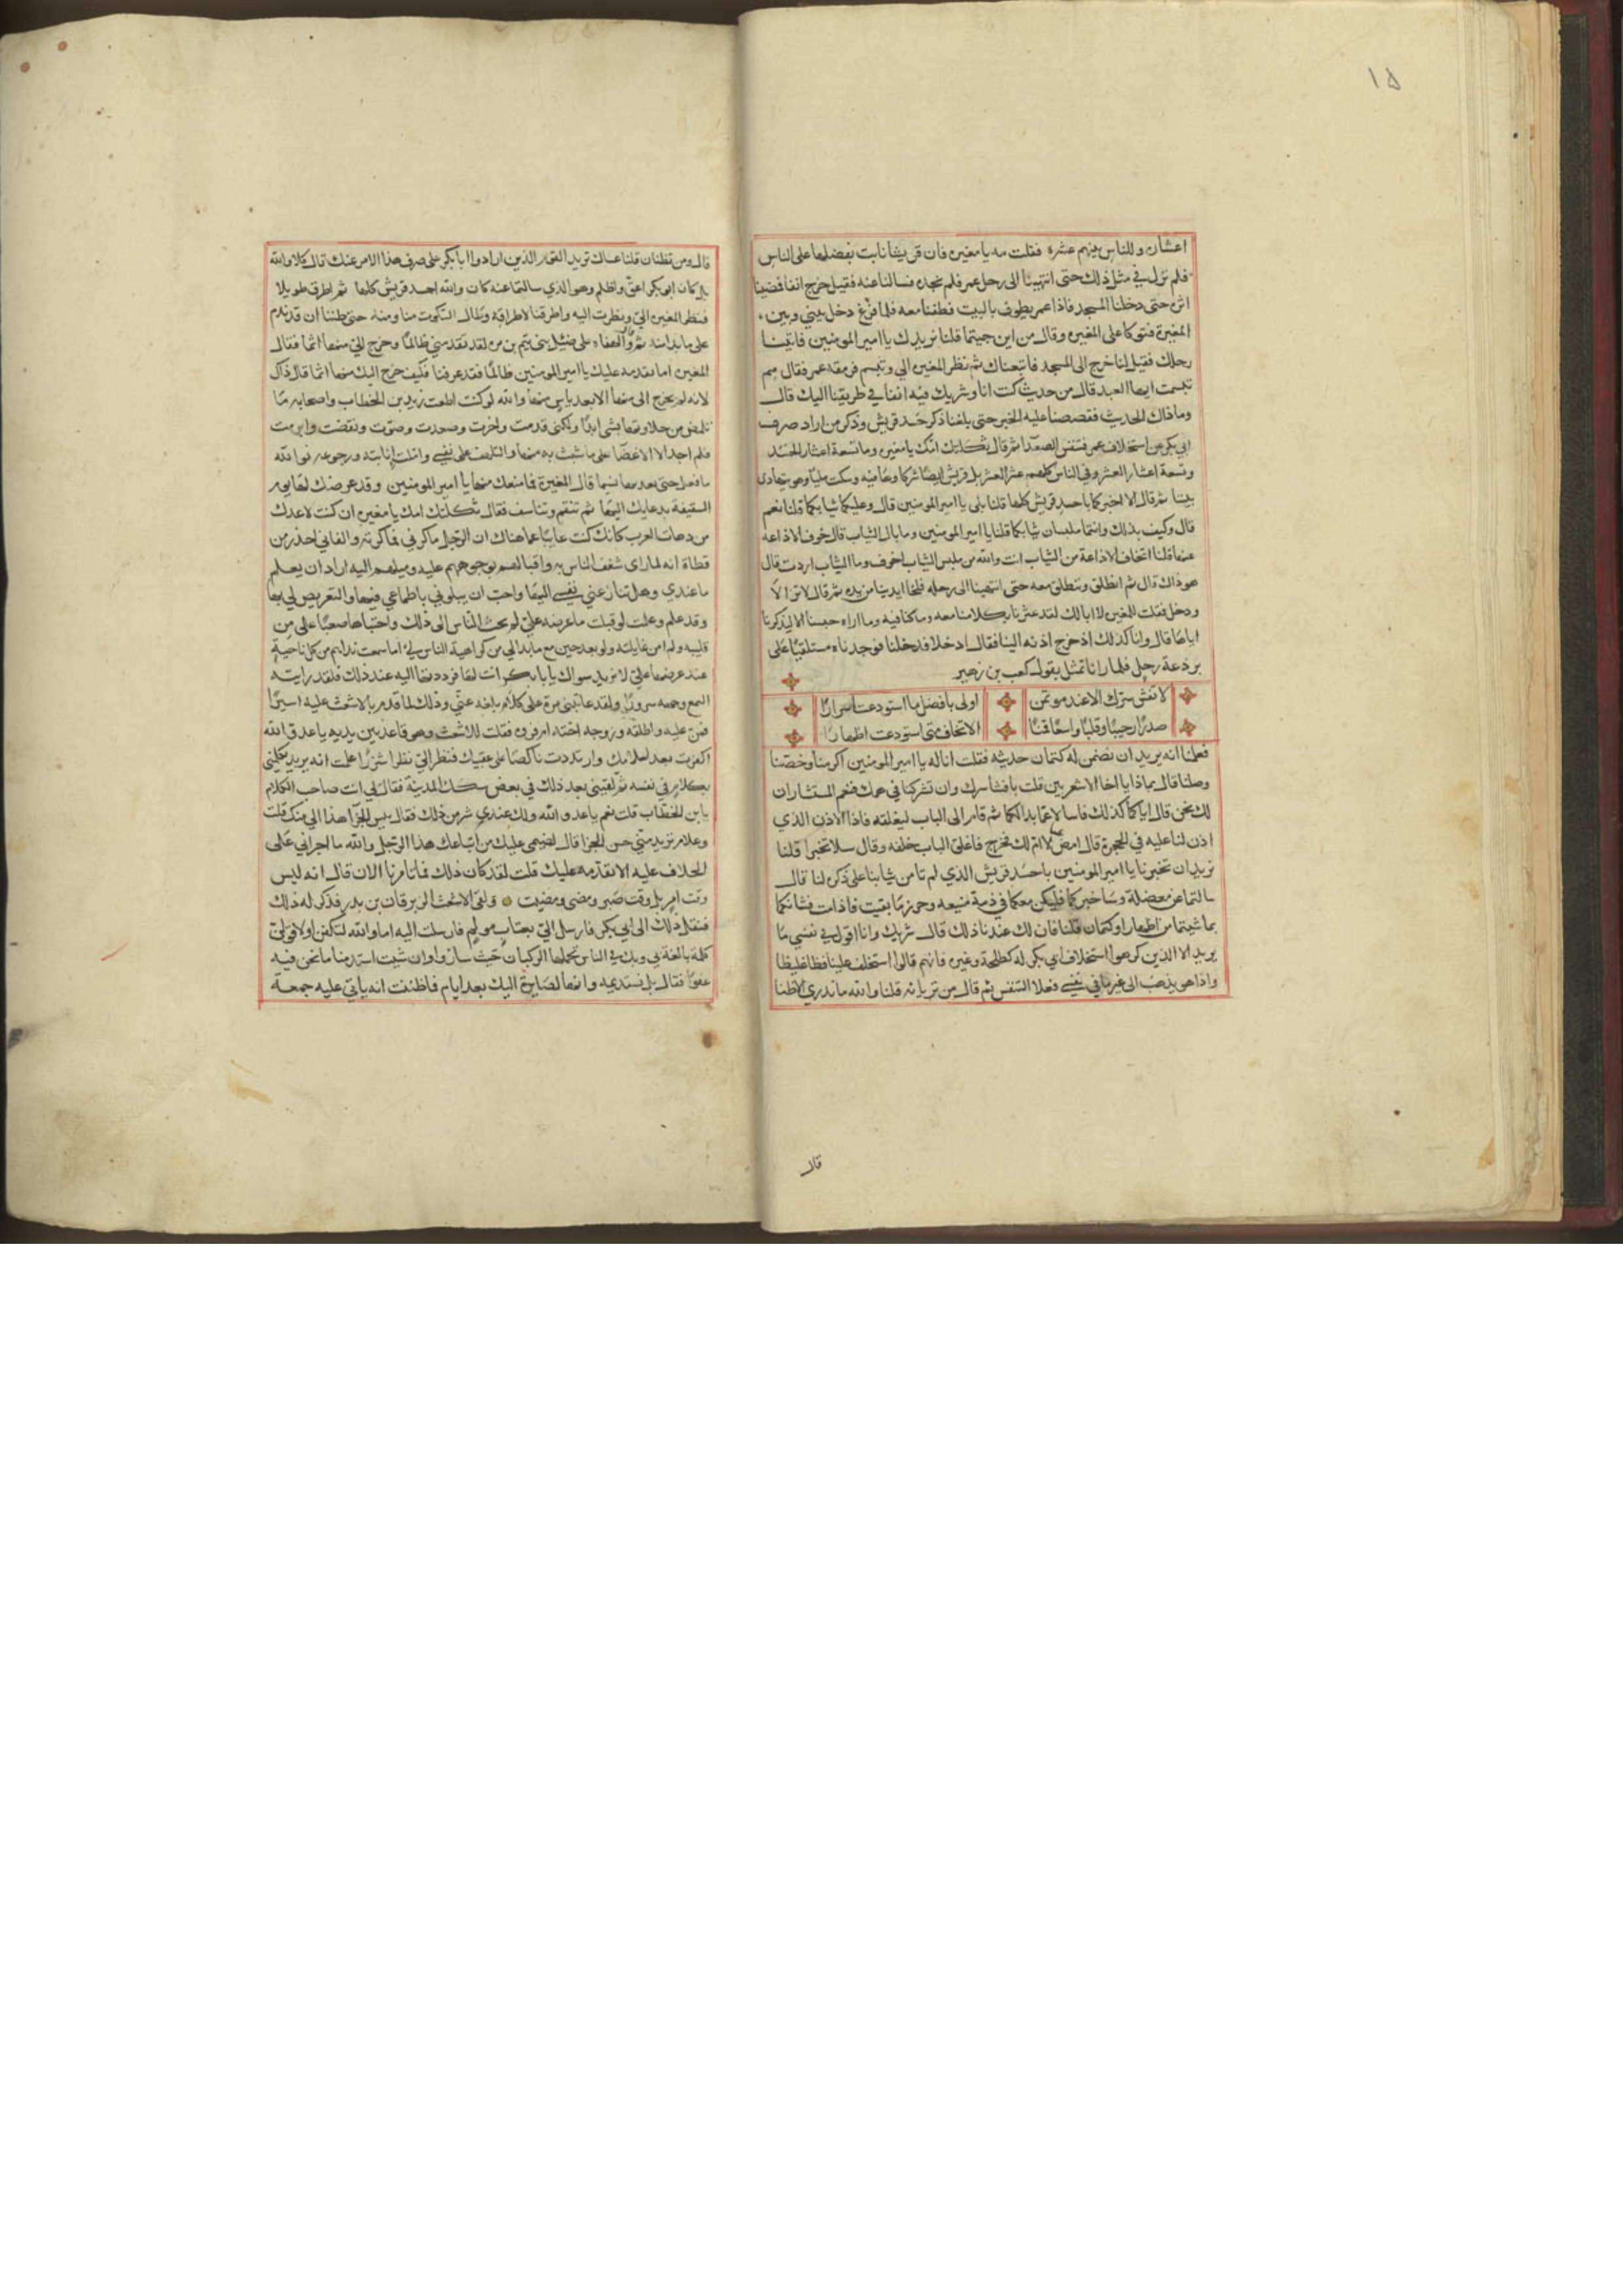 ١٥
اعشاره وللناس بينهم عشره فقلت مه يا مغيره فان قريشا نابت بفضلها على الناس
فلم نزل في مثل ذلك حتى انتهينا الى رحل عمر فلم نجده فسالنا عنه فقيل خرج انفا فمضينا
اثره حتى دخلنا المسجد فاذا عمر يطوف بالبيت فطفنا معه فلما فرغ دخل بيني وبين
المغيرة فتوكا على المغيره وقال من اين جيتما قلنا نريدك يا امير المومنين فاتينا
رحلك فقيل لنا خرج الى المسجد فاتبعناك ثم نظر المغيره الي وتبسم فرمقه عمر فقال مم
تبسمت ايها العبد قال من حديث كنت انا وشريك فيه انفا في طريقنا اليك قال
وما ذاك الحديث فقصصنا عليه الخبر حتى بلغنا ذكر حسد قريش وذكر من اراد صرف
ابي بكر عن استخلاف عمر فتنفس الصعدا ثم قال ثكلتك امك يا مغيره وما تسعة اعشار الحسد
وتسعة اعشار العشر وفي الناس كلهم عشر العشر بل قريش ايضا شركاوهما فيه وسكت مليا وهو يتهادى
بيننا ثم قال الا اخبركما باحسد قريش كلها قلنا بلى يا امير المومنين قال وعليكما ثيابكما قلنا نعم
قال وكيف بذلك وانتما ملبسان ثيابكما قلنا يا امير المومنين وما بال الثياب قال خوف الاذاعه
عنها قلنا اتخاف الاذاعة من الثياب انت والله من ملبس الثياب اخوف وما الثياب اردت قال
هو ذاك قال ثم انطلق وننطلق معه حتى انتهينا الى رحله فخلا ايدينا من يده ثم قال لا تريما
ودخل فقلت للمغيره لا ابا لك لقد عثرنا بكلامنا معه وما كنا فيه وما اراه حبسنا الا ليذكرنا
اياها قال وانا كذلك اذ خرج اذنه الينا فقال ادخلا فدخلنا فوجدناه مستلقيا على
برذعة رحل فلما رانا تمثل بقول كعب بن زهير
لا تفش سرك الا عند موتمن اولى بافضل ما استودعت اسرارا
صدرا رحيبا وقلبا واسعا قمنا الا تخاف متى استودعت اظهارا
فعلمنا انه يريد ان نضمن له كتمان حديثه فقلت انا له يا امير المومنين اكرمنا وخصنا
وصلنا قال بماذا يا اخا الاشعريين قلت بافشا سرك وان تشركنا في همك فنعم المستشاران
لك نحن قال انكما كذلك فاسالا عما بدا لكما ثم قام الى الباب ليغلقه فاذا الاذن الذي
اذن لنا عليه في الحجرة قال امض عنا لا ام لك فخرج فاغلق الباب خلفه وقال سلا تخبرا قلنا
نريد ان تخبرنا يا امير المومنين باحسد قريش الذي لم تامن ثيابنا على ذكره لنا قال
سالتما عن معضلة وساخبركما فليكن معكما في ذمة منيعه وحرز ما بقيت فاذا مت فشانكما
بما شيتما من اظهار او كتمان قلنا فان لك عندنا ذلك قال شريك وانا اقول في نفسي ما
يريد الا الذين كرهوا استخلاف ابي بكر له كطلحة وغيره فانهم قالوا استخلف علينا فظا غليظا
واذا هو يذهب الى غير ما في نفسي فعلا التنفس ثم قال من تريانه قلنا والله ما ندري الا ظنا
قال
قال ومن تظنان قلنا عساك تريد القوم الذين ارادوا ابا بكر على صرف هذا الامر عنك قال كلا والله
بل كان ابو بكر اعق واظلم وهو الذي سالتما عنه كان والله احسد قريش كلها ثم اطرق طويلا
فنظر المغيره الي ونظرت اليه واطرقنا لاطراقه وطال السكوت منا ومنه حتى ظننا ان قد ندم
على ما بدا منه ثم قال والهفاه على ضئيل بني تيم بن مره لقد تقدمني ظالما وخرج الي منها اثما فقال
المغيره اما تقدمه عليك يا امير المومنين ظالما فقد عرفنا فكيف خرج اليك منها اثما قال ذاك
لانه لم يخرج الي منها الا بعد ياس منها والله لو كنت اطعت زيد بن الخطاب واصحابه ما
تلمظ من حلاوتها بشي ابدا ولكني قدمت واخرت وصعدت وصوبت ونقضت وابرمت
فلم اجد الا الاغضا على ما نشب به منها والتلهف على نفسي واملت انابته ورجوعه فوالله
ما فعل حتى بعد منها بشما قال المغيرة فما منعك منها يا امير المومنين وقد عرضك لها يوم
السقيفة بدعايك اليها ثم تنقم وتتاسف فقال ثكلتك امك يا مغيره ان كنت لاعدك
من دهات العرب كانك كنت غايبا عما هناك ان الرجل ماكرني فماكرته والفاني احذر من
قطاة انه لما راى شغف الناس به واقبالهم بوجوههم عليه وميلهم اليه اراد ان يعلم
ما عندي وهل تنازعني نفسي اليها واحب ان يبلوني باطماعي فيها والتعريض لي بها
وقد علم وعلمت لو قبلت ما عرضه علي لم يجب الناس الى ذلك واحتباها صعبا على من
قلبه ولم امن غايلته ولو بعد حين مع ما بدا لي من كراهية الناس لي اما سمعت نداهم من كل ناحية
عند عرضها علي لا نريد سواك يا ابا بكر انت لها فرددتها اليه عند ذلك فلقد رايته
التمع وجهه سرورا ولقد عاتبني مرة على كلام بلغه عني وذلك لما قدم بالاشعث عليه اسيرا
فمن عليه واطلقه وزوجه اخته ام فروه فقلت للاشعث وهو قاعد بين يديه يا عدو الله
اكفرت بعد اسلامك وارتددت ناكصا على عقبيك فنظر الي نظرا شزرا علمت انه يريد يكلمني
بكلام في نفسه ثم لقيني بعد ذلك في بعض سكك المدينة فقال لي انت صاحب الكلام
يا بن الخطاب قلت نعم يا عدو الله ولك عندي شر من ذلك فقال بيس الجزا هذا الي منك قلت
وعلام تريد مني حسن الجزا قال لنفسي عليك من اتباعك هذا الرجل والله ما اجراني على
الخلاف عليه الا تقدمه عليك قلت لقد كان ذلك فما تامرنا الان قال انه ليس
وقت امر بل وقت صبر ومضى ومضيت ولقي الاشعث الزبرقان بن بدر فذكر له ذلك
فنقل ذلك الى ابي بكر فارسل الي بعتاب مولم فارسلت اليه اما والله لتكفن او لاقولن
كلمة بالغة بي وبك في الناس تحملها الركبان حيث ساروا وان شيت استدمنا ما نحن فيه
عفوا فقال بل نستديمه وانها لصايرة اليك بعد ايام فما ظننت انه ياتي عليه جمعة